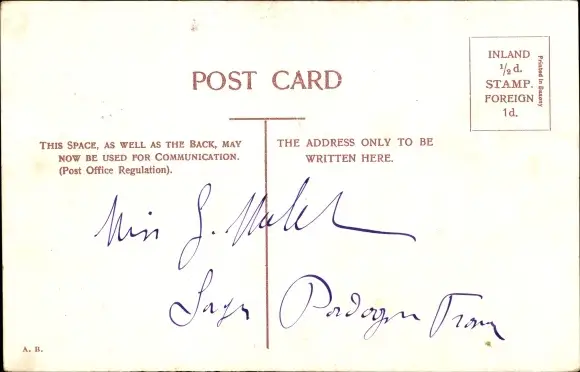 POST CARD
INLAND
½ d.
STAMP.
FOREIGN
1d.
Printed in Saxony
THIS SPACE, AS WELL AS THE BACK, MAY
NOW BE USED FOR COMMUNICATION.
(Post Office Regulation).
THE ADDRESS ONLY TO BE
WRITTEN HERE.
Miss G.
A. B.